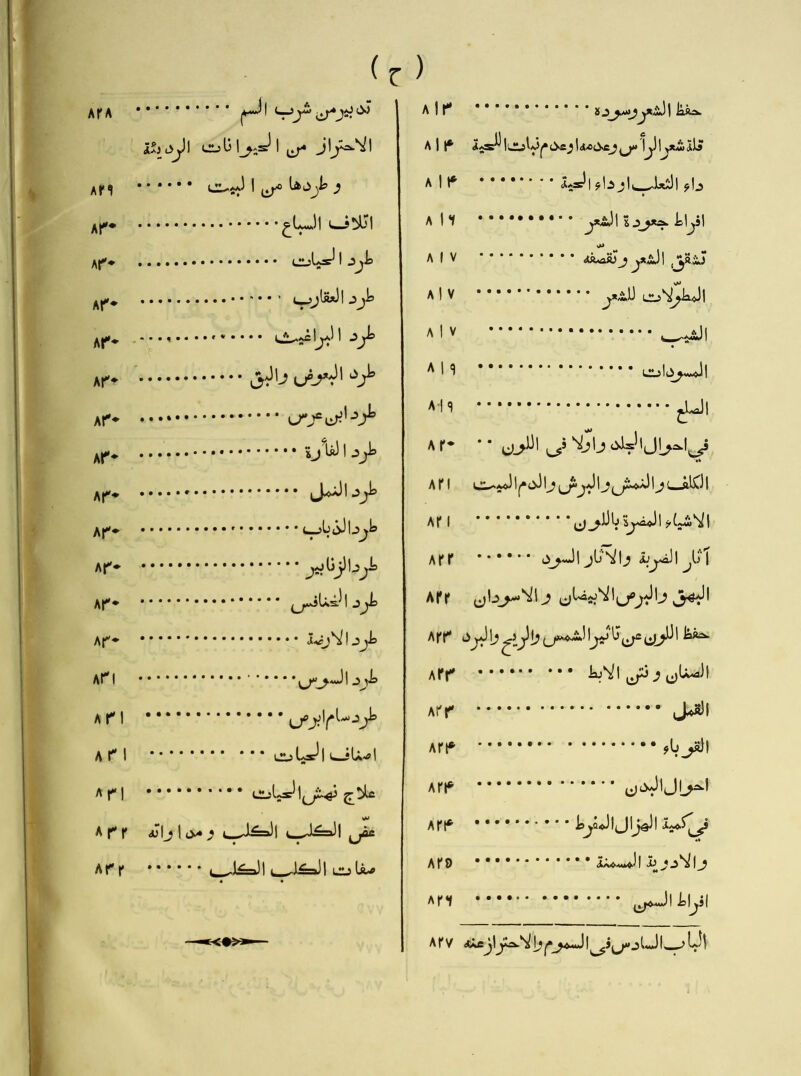 (ج)
٨١٣ حفظ الشعر
٨١٤ الرأس وعدم اللحية
٨١٤ داء الثعلب وداء الحية
٨١٦ افراط جعودة الشعر
٨١٧ تشقق الشعر وتقصفه
٨١٧ المطولات للشعر
٨١٧ الشيب
٨١٩ المسودات
٨١٩ الصلع
٨٢٠ في احوال الجلد واولا في اللون
٨٢١ الكلف والنمش والبرش والدم الميت
٨٢١ الاشياء المصفرة باللون
٨٢٢ آثار القرحة والاثار السود
٨٢٢ البهق والبرص الابيضان والاسودان
٨٢٣ حفظ اللون عن تاثير الشمس والريح والبرد
٨٢٣ الصنان ونتن الابط
٨٢٣ القمل
٨٢٤ القوباء
٨٢٤ احوال البدن
٨٢٤ في الهزال المفرط
٨٢٥ والادوية المسمنة
٨٢٦ افراط السمن
٨٢٧ الباب السادس في السموم والاحتراز عنه
٨٢٨ تدبير من شرب السم
الاحتراز من الحيوانات الردية
٨٢٩ وطردها من البيت
٨٣٠ اتلاف السباع
٨٣٠ طرد الحيات
٨٣٠ طرد العقارب
٨٣٠ طرد البراغيث
٨٣٠ طرد البعوض والبق
٨٣٠ طرد ابن عرس
٨٣٠ طرد الفارة
٨٣٠ طرد النمل
٨٣٠ طرد الذباب
٨٣٠ طرد الزنابير
٨٣٠ طرد الخنافس
٨٣٠ طرد الارضة
٨٣١ طرد السوس
٨٣١ طرد سام ابرص
٨٣١ اصناف الحيات
٨٣١ علاج نهش الحيات
٨٣٢ عض الكلب الكلب وما والاه
٨٣٢ صفات الكلب الكلب